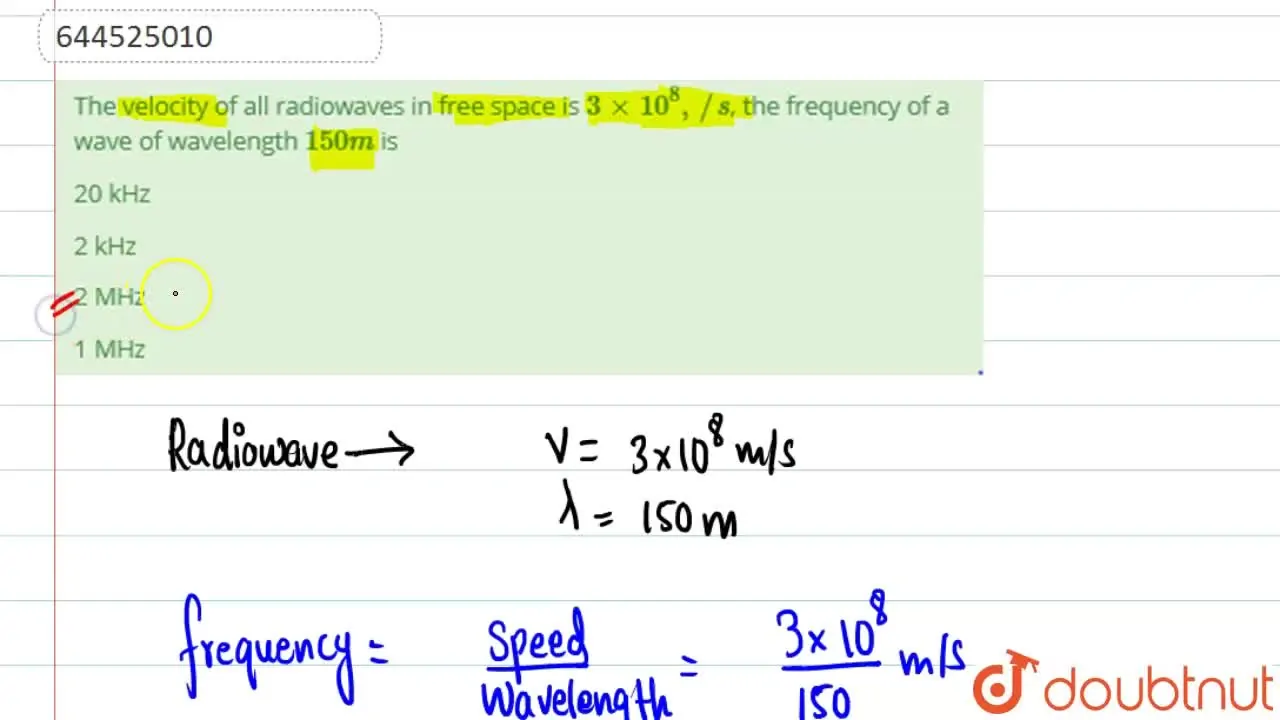 644525010
The velocity of all radiowaves in free space is 3 × 10⁸, /s, the frequency of a
wave of wavelength 150m is
20 kHz
2 kHz
2 MHz
1 MHz
Radiowave → v = 3×10⁸ m/s
λ = 150 m
frequency = Speed/Wavelength = 3×10⁸/150 m/s
doubtnut